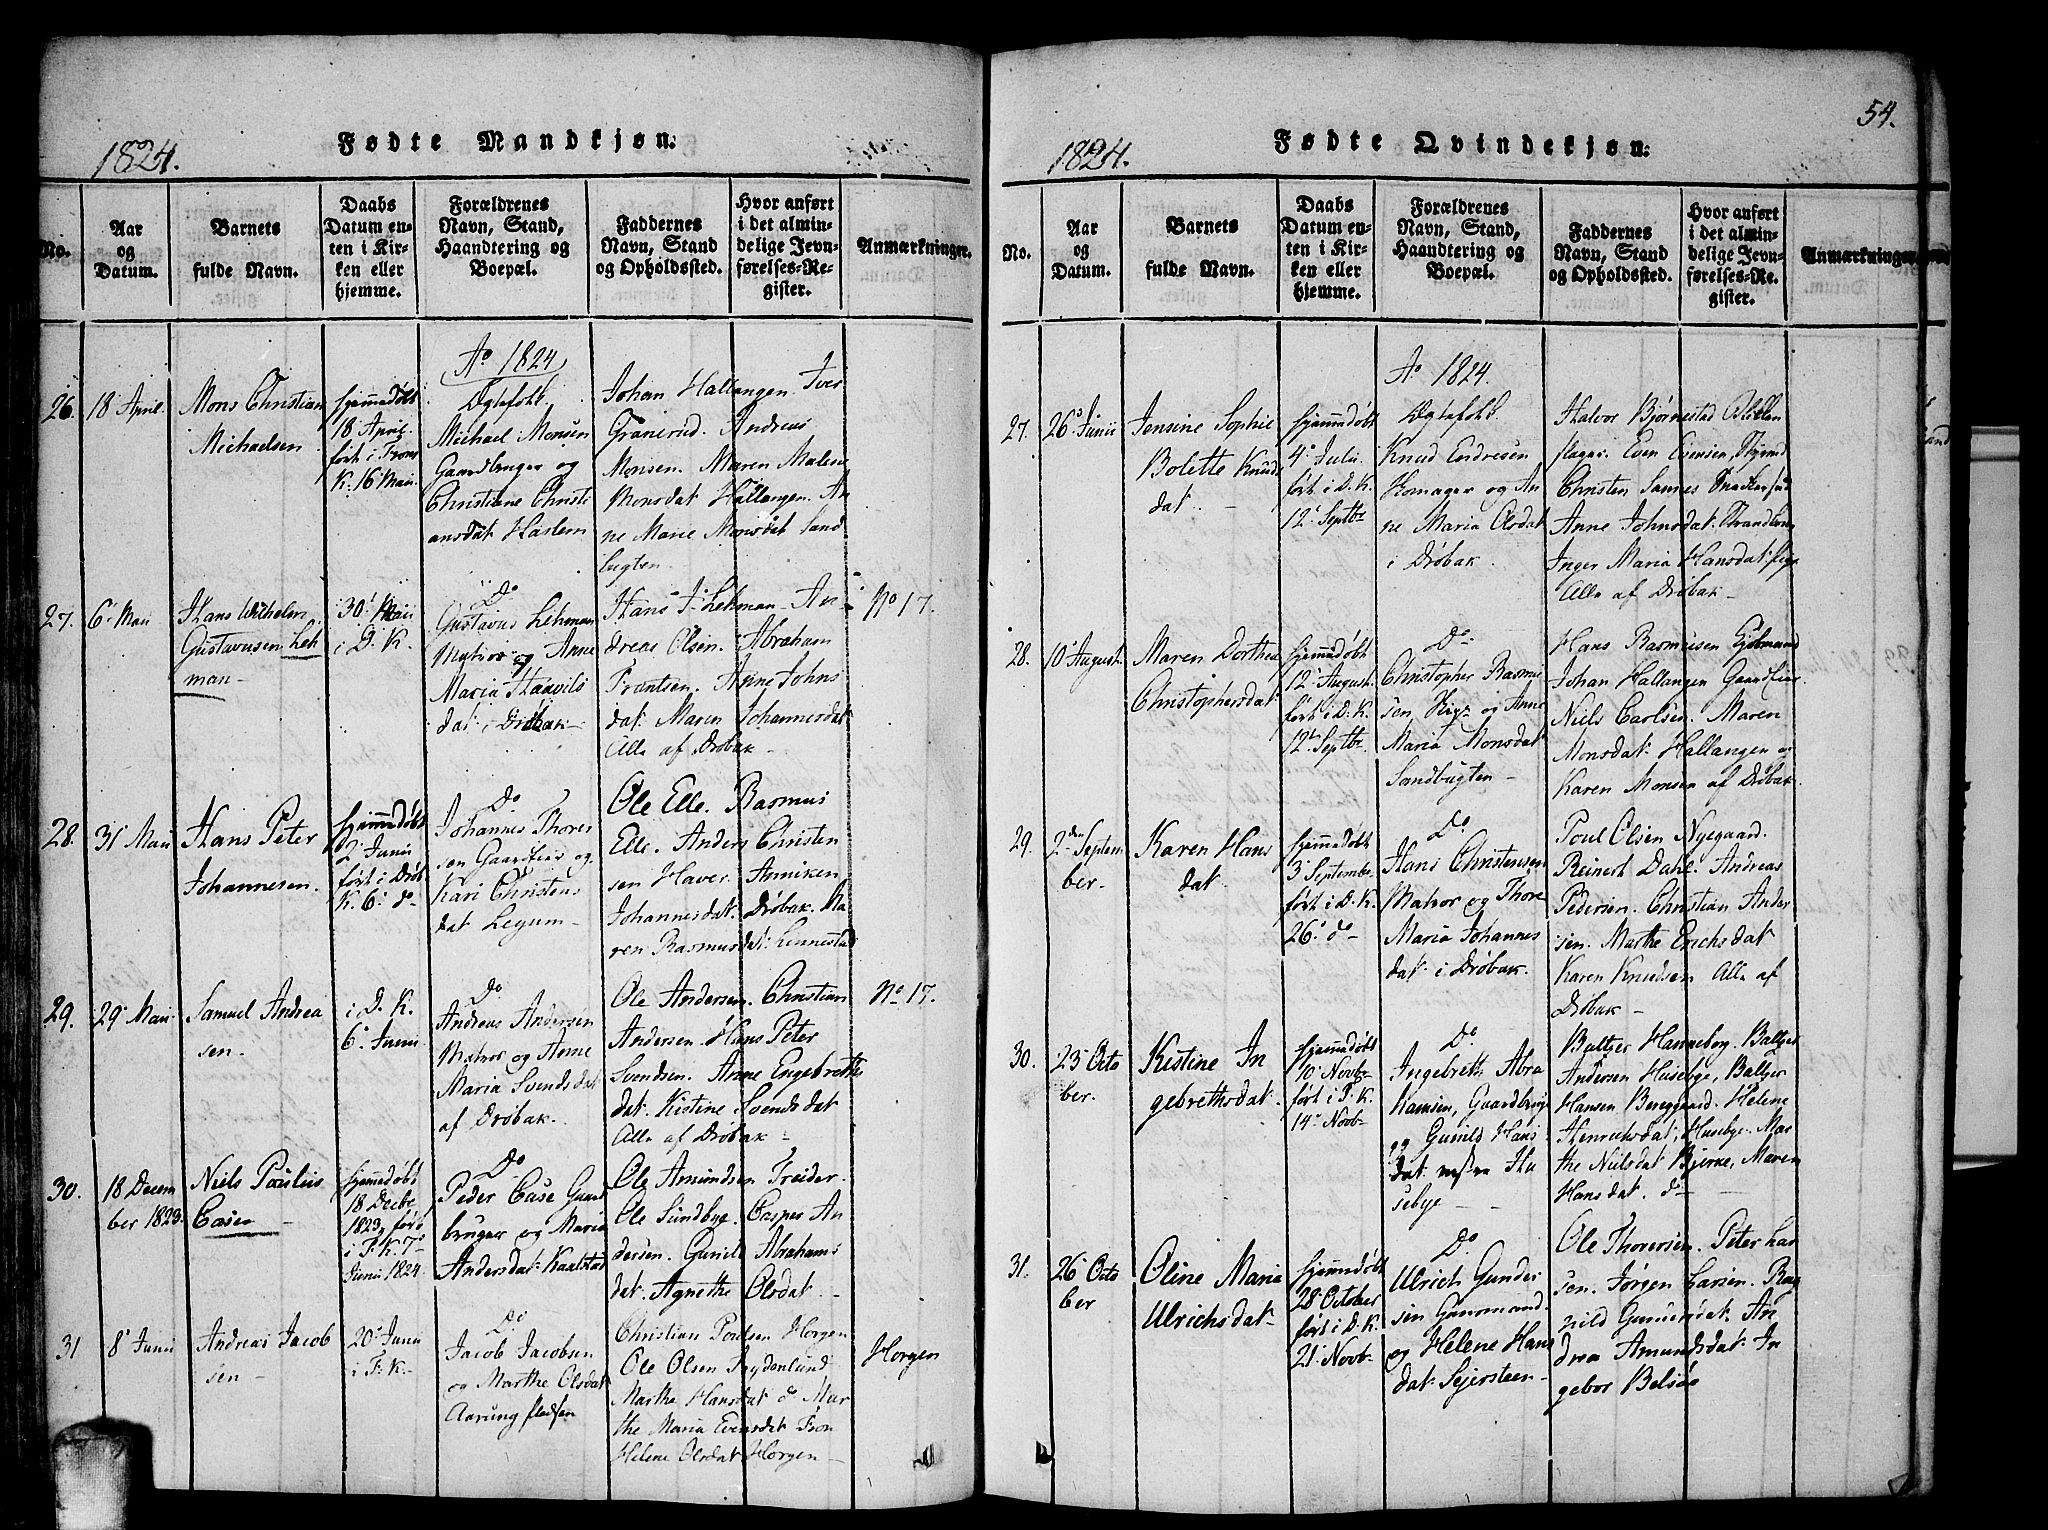 1824.
Fødte Mandkjøn.
No.
Aar
og
Datum.
Barnets
fulde Navn.
Daabs
Datum en-
ten i Kir-
ken eller
hjemme.
Forældrenes
Navn, Stand,
Haandtering og
Boepæl.
Faddernes
Navn, Stand
og Opholdssted.
Hvor anført
i det almin-
delige Jevn-
førelses-Re-
gister.
Anmærkninger.
Ao 1824
26.
18 April.
Mons Christian
Michaelsen
hjemmedøbt
18 April.
ført i Frons
K. 16 Maii.
Ægtefolk
Michael Monsen
Gaardbruger og
Christiane Christi
ansdat Haslem
Johan Hallangen Iver
Granerud. Andreas
Monsen. Maren Malene
Monsdat Hallangen. An
ne Marie Monsdat Sand
bugten
27.
6 Maii
Hans Wilhelm
Gustavusen Leh
man
30 Maii
i D. K.
Do
Gustavus Lehman
Matros og Anne
Maria Haavils
dat i Drøbak
Hans J. Lehman. An
dreas Olsen. Abraham
Frantsen. Anne Johns
dat. Maren Johannesdat
Alle af Drøbak
No 17.
28.
31 Maii
Hans Peter
Johannesen.
hjemmedøbt
2 Junii
ført i Drøb
K. 6 do
Do
Johannes Thores
sen Gaardeier og
Kari Christens
dat Legum
Ole Elle. Rasmus
Elle. Anders Christen
sen Haver Anniken
Johannesdat. Drøbak. Ma
ren Rasmusdat. Lennestad
29.
29 Maii
Samuel Andrea
sen
i D. K.
6 Junii
Do
Andreas Andersen
Matros og Anne
Maria Svendsdat
af Drøbak.
Ole Andersen. Christian
Andersen. Hans Peter
Svendsen. Anne Engebreths
dat. Kistine Svendsdat
Alle af Drøbak
No 17.
30.
18 Decem
ber 1823.
Niels Paulus
Casen
hjemmedøbt
18 Decbr
1823, ført
i F. K. 7
Junii 1824
Do
Peder Case Gaard
bruger og Maria
Andersdat. Kaalstad
Ole Amundsen Treider.
Ole Sundbye. Casper An
dersen. Gunild Abrahams
dat. Agnethe Olsdat.
31
8 Junii
Andreas Jacob
sen
20 Junii
i F. K.
Do
Jacob Jacobsen
og Marthe Olsdat
Aarung pladsen
Christian Poulsen Horgen
Ole Olsen Frydenlund
Marthe Hansdat do Mar
the Maria Evensdat Fron
Helene Olsdat Horgen
Horgen
1824.
Fødte Qvindekjøn.
54.
No.
Aar
og
Datum.
Barnets
fulde Navn.
Daabs
Datum en-
ten i Kir-
ken eller
hjemme.
Forældrenes
Navn, Stand,
Haandtering og
Boepæl.
Faddernes
Navn, Stand
og Opholdssted.
Hvor anført
i det almin-
delige Jevn-
førelses-Re-
gister.
Anmærkninger
Ao 1824.
27.
26 Junii
Jensine Sophie
Bolette Knuds
dat.
hjemmedøbt
4 Julii
ført i D. K.
12 Septbr
Ægtefolk
Knud Endresen
og An
ne Maria Olsdat
i Drøbak.
Halvor Bjørnestad
Even Evensen,
Christen Sannes Snedkersvend
Anne Johnsdat.
Inger Maria Hansdat pige
Alle af Drøbak
28.
10 August.
Maren Dorthea
Christophersdat
hjemmedøbt
12 August
ført i D. K.
12 Septbr
Do
Christopher Rasmus
sen, og Anne
Maria Monsdat
Sandbugten
Hans Rasmussen
Johan Hallangen Gaardeier
Niels Carlsen. Maren
Monsdat Hallangen og
Karen Monsen af Drøbak.
29.
2den Septem
ber.
Karen Hans
dat.
hjemmedøbt
3 Septembr
ført i D. K.
26 do
Do
Hans Christensen
Matros og Thore
Maria Johannes
dat. i Drøbak.
Poul Olsen Nyegaard.
Reinert Dahl. Andreas
Pedersen. Christian Ander
sen. Marthe Erichsdat
Karen Knudsen Alle af
Drøbak
30.
23 Octo
ber.
Kistine In
gebrethsdat.
hjemmedøbt
10 Novbr
ført i F. K.
14 Novbr
Do
Ingebreth Abra
hamsen, Gaardbruger
og Gunild Hans
dat. vestre Hu
sebye
Baltzer Hanneborg. Baltzer
Andersen Husebye, Baltzer
Hansen Berggaard. Helene
Henrichsdat, Husebye. Mar
the Nielsdat Bjerke, Maren
Hansdat. do
31.
26 Octo
ber
Oline Maria
Ulrichsdat
hjemmedøbt
28 October
ført i D. K.
21 Novbr
Do
Ulrich Gunder
sen Huusmand
og Helene Hans
dat Sejersteen
Ole Thoresen. Peter Lar
sen. Jørgen Larsen. Rag
nild Gunnersdat. An
drea Amundsdat In
gebor Belsøe